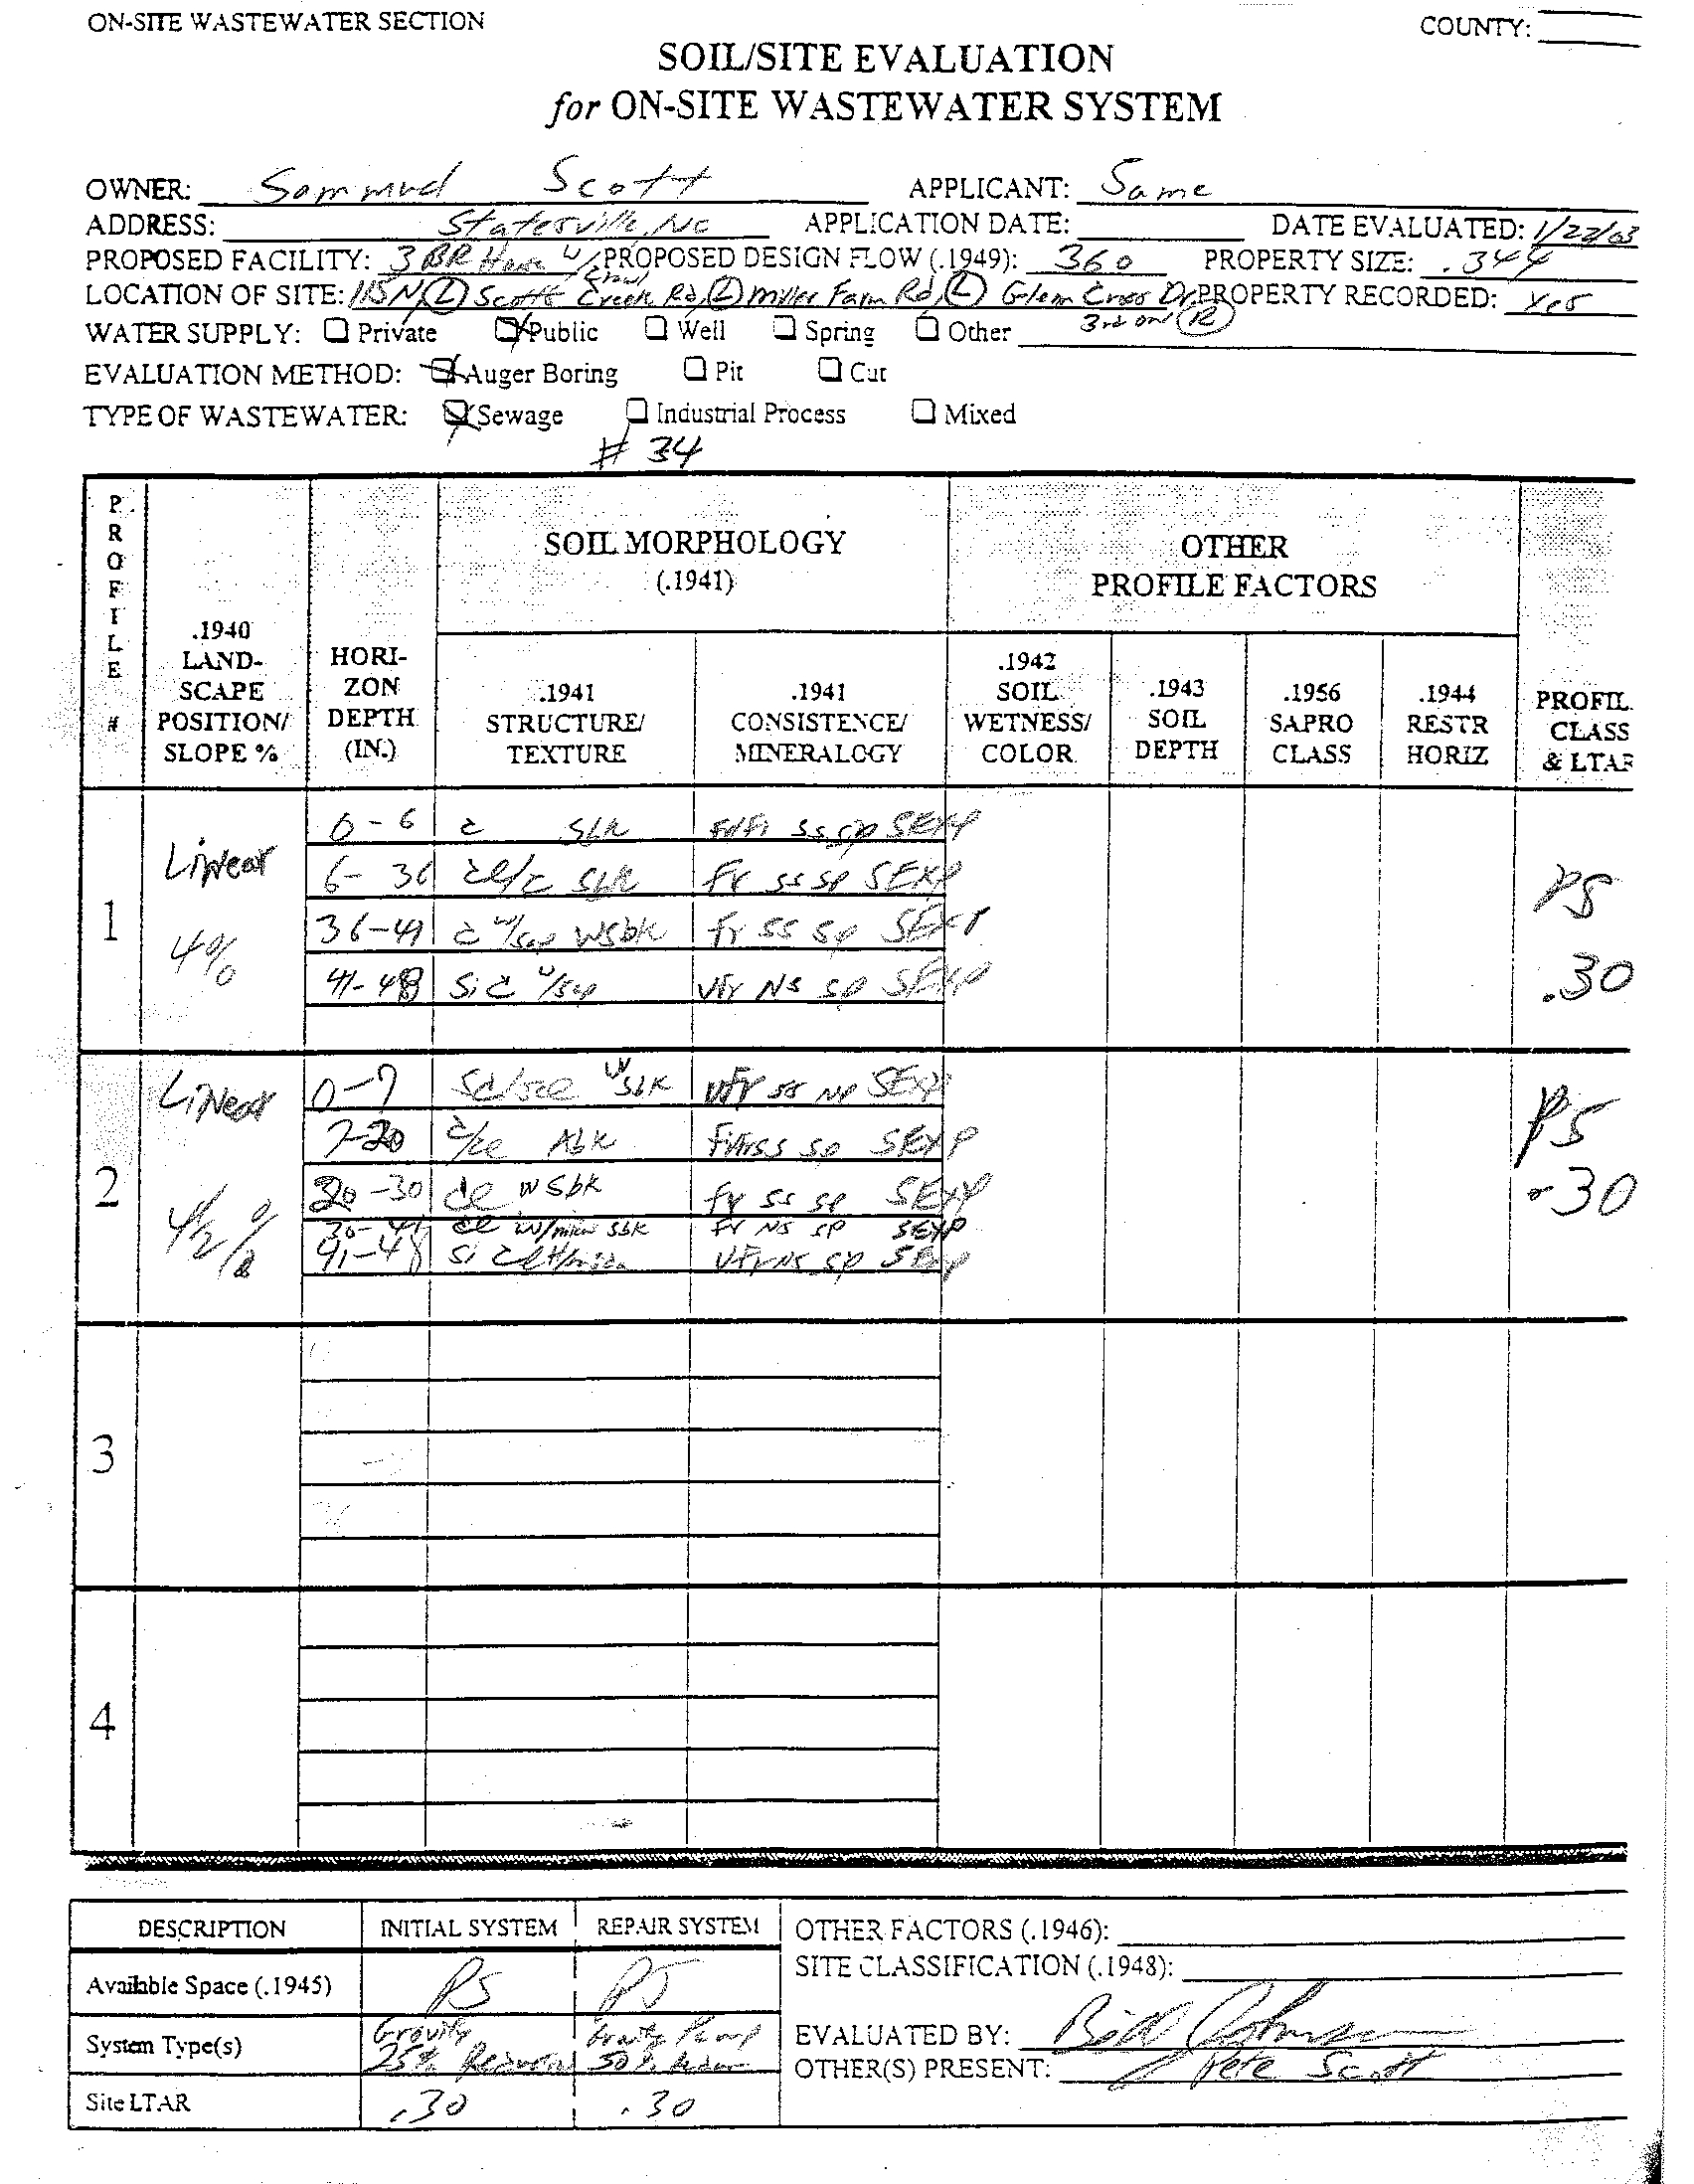 ON-SITE WASTEWATER SECTION
COUNTY:
SOIL/SITE EVALUATION
for ON-SITE WASTEWATER SYSTEM
OWNER: Scott APPLICANT: Same
ADDRESS: Statesville, NC APPLICATION DATE: DATE EVALUATED: 1/22/03
PROPOSED FACILITY: 3 BR House w/ PROPOSED DESIGN FLOW (.1949): 360 PROPERTY SIZE: .344
LOCATION OF SITE: 115 N (L) Scotts Creek Rd, (L) Miller Farm Rd, (L) Glenn Cross Dr PROPERTY RECORDED: Yes
3rd on (R)
WATER SUPPLY: Private Public Well Spring Other
EVALUATION METHOD: Auger Boring Pit Cut
TYPE OF WASTEWATER: Sewage Industrial Process Mixed
# 34
PROFILE #
.1940 LAND-SCAPE POSITION/ SLOPE %
HORI-ZON DEPTH (IN.)
SOIL MORPHOLOGY (.1941)
.1941 STRUCTURE/ TEXTURE
.1941 CONSISTENCE/ MINERALOGY
OTHER PROFILE FACTORS
.1942 SOIL WETNESS/ COLOR
.1943 SOIL DEPTH
.1956 SAPRO CLASS
.1944 RESTR HORIZ
PROFIL. CLASS & LTAR
1 Linear 4% PS .30
0-6 c sbk fr/fi ss sp SEXP
6-36 cl/c sbk fr ss sp SEXP
36-41 c w/sap wsbk fr ss sp SEXP
41-48 sic w/sap vfr ns sp SEXP
2 Linear 4 1/2 % PS .30
0-7 wsbk vfr ss np SEXP
7-20 c/cl abk ss sp SEXP
20-30 cl wsbk fr ss sp SEXP
30-41 cl w/mica sbk fr ns sp SEXP
41-48 si cl vfr ns sp SEXP
3
4
DESCRIPTION INITIAL SYSTEM REPAIR SYSTEM
Available Space (.1945) PS PS
System Type(s) Gravity 25% Reduction Pump 50%
Site LTAR .30 .30
OTHER FACTORS (.1946):
SITE CLASSIFICATION (.1948):
EVALUATED BY: Bill Johnson
OTHER(S) PRESENT: Pete Scott